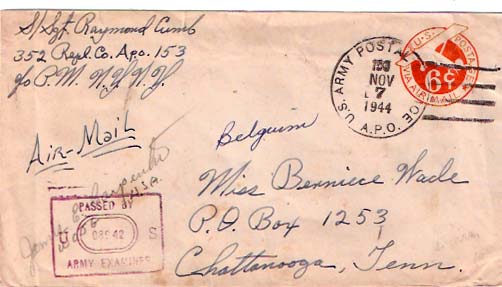 S/Sgt. Raymond Cumb
352 Repl. Co. Apo. 153
c/o P.M. N.Y. N.Y.
U.S. ARMY POSTAL SERVICE
153
NOV
7
1944
A.P.O.
U.S. POSTAGE
6¢
VIA AIR MAIL
Air-Mail
Belguim
Miss Berniece Wade
P.O. Box 1253
Chattanooga, Tenn.
Carpenter
PASSED BY
U S
ARMY EXAMINER